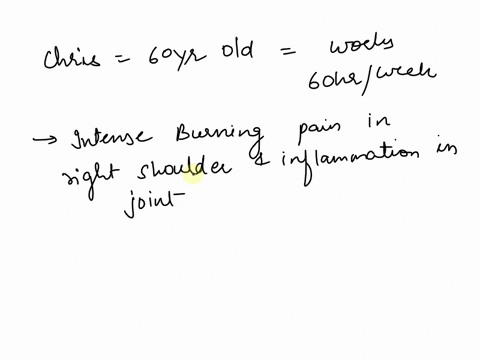 Chris = 60yr old = works
60hr/week
→ Intense Burning pain in
right shoulder & inflammation in
joint